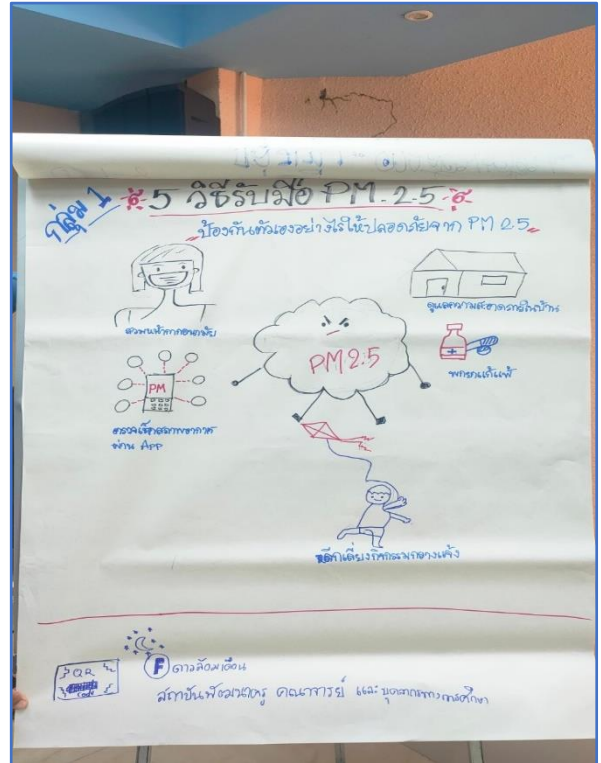 กลุ่ม 1
5 วิธีรับมือ PM. 2.5
ป้องกันตัวเองอย่างไรให้ปลอดภัยจาก PM 2.5
สวมหน้ากากอนามัย
ดูแลความสะอาดภายในบ้าน
PM 2.5
พกยาแก้แพ้
PM
ตรวจเช็คสภาพอากาศ
ผ่าน App
หลีกเลี่ยงกิจกรรมกลางแจ้ง
QR
Code
F ดาวล้อมเดือน
สถาบันพัฒนาครู คณาจารย์ และบุคลากรทางการศึกษา